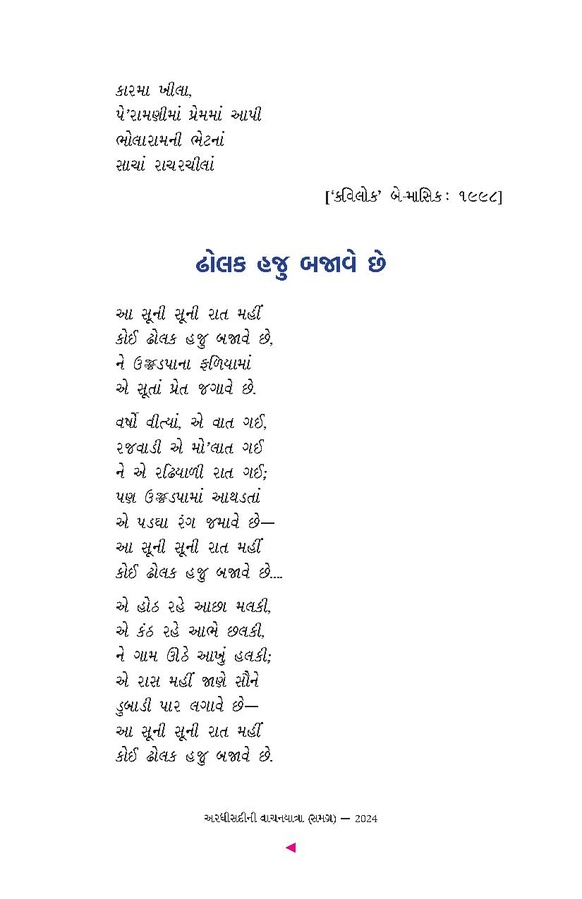 કારમા ખીલા,
પે’રામણીમાં પ્રેમમાં આપી
ભોલારામની ભેટનાં
સાચાં રાચરચીલાં
[‘કવિલોક’ બે-માસિક : ૧૯૯૮]
ઢોલક હજુ બજાવે છે
આ સૂની સૂની રાત મહીં
કોઈ ઢોલક હજુ બજાવે છે,
ને ઉજ્જડપાના ફળિયામાં
એ સૂતાં પ્રેત જગાવે છે.
વર્ષો વીત્યાં, એ વાત ગઈ,
રજવાડી એ મો’લાત ગઈ
ને એ રઢિયાળી રાત ગઈ;
પણ ઉજ્જડપામાં આથડતાં
એ પડઘા રંગ જમાવે છે—
આ સૂની સૂની રાત મહીં
કોઈ ઢોલક હજુ બજાવે છે....
એ હોઠ રહે આછા મલકી,
એ કંઠ રહે આભે છલકી,
ને ગામ ઊઠે આખું હલકી;
એ રાસ મહીં જાણે સૌને
ડુબાડી પાર લગાવે છે—
આ સૂની સૂની રાત મહીં
કોઈ ઢોલક હજુ બજાવે છે.
અરધીસદીની વાચનયાત્રા (સમગ્ર) — 2024